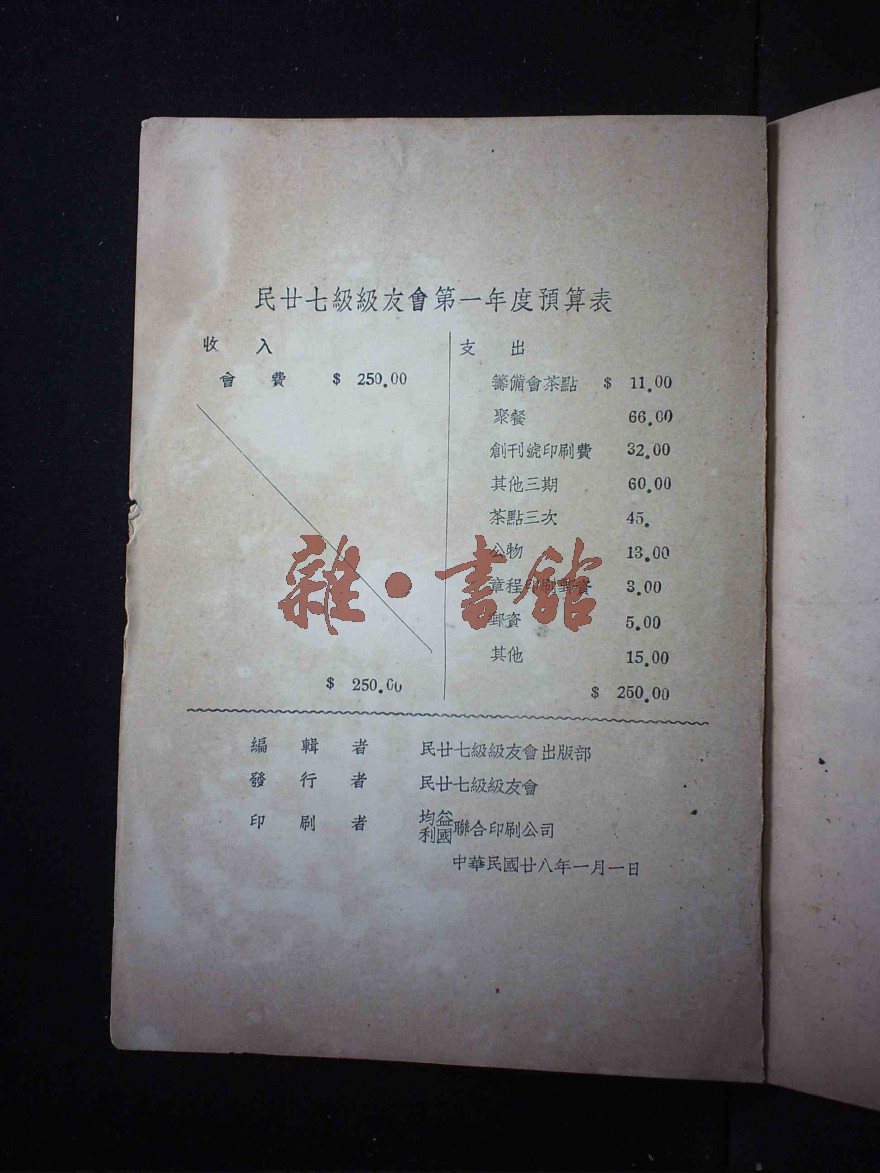 民廿七級級友會第一年度預算表
收 入
會 費 $ 250.00
$ 250.00
支 出
籌備會茶點 $ 11.00
聚餐 66.00
創刊號印刷費 32.00
其他三期 60.00
茶點三次 45.
公物 13.00
章程印刷郵資 3.00
郵資 5.00
其他 15.00
$ 250.00
雜·書館
編 輯 者 民廿七級級友會出版部
發 行 者 民廿七級級友會
印 刷 者 均益利國聯合印刷公司
中華民國廿八年一月一日